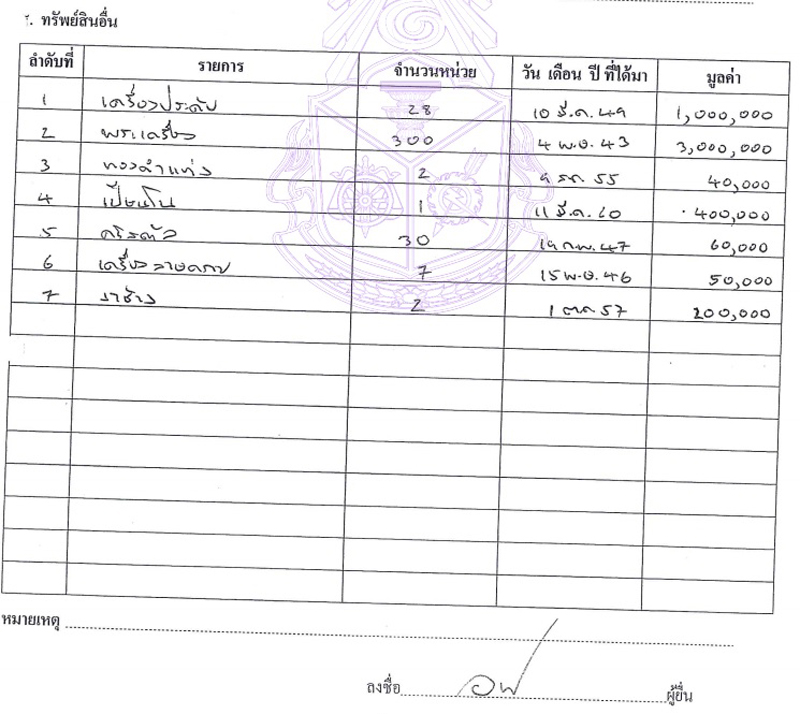 . ทรัพย์สินอื่น
ลำดับที่ รายการ จำนวนหน่วย วัน เดือน ปี ที่ได้มา มูลค่า
1 เครื่องประดับ 28 10 มี.ค. 49 1,000,000
2 พระเครื่อง 300 4 พ.ย. 43 3,000,000
3 ทองคำแท่ง 2 55 40,000
4 เปียนโน 1 400,000
5 30 47 60,000
6 เครื่อง 7 15 พ.ย. 46 50,000
7 งาช้าง 2 1 ต.ค. 57 200,000
หมายเหตุ
ลงชื่อ ผู้ยื่น